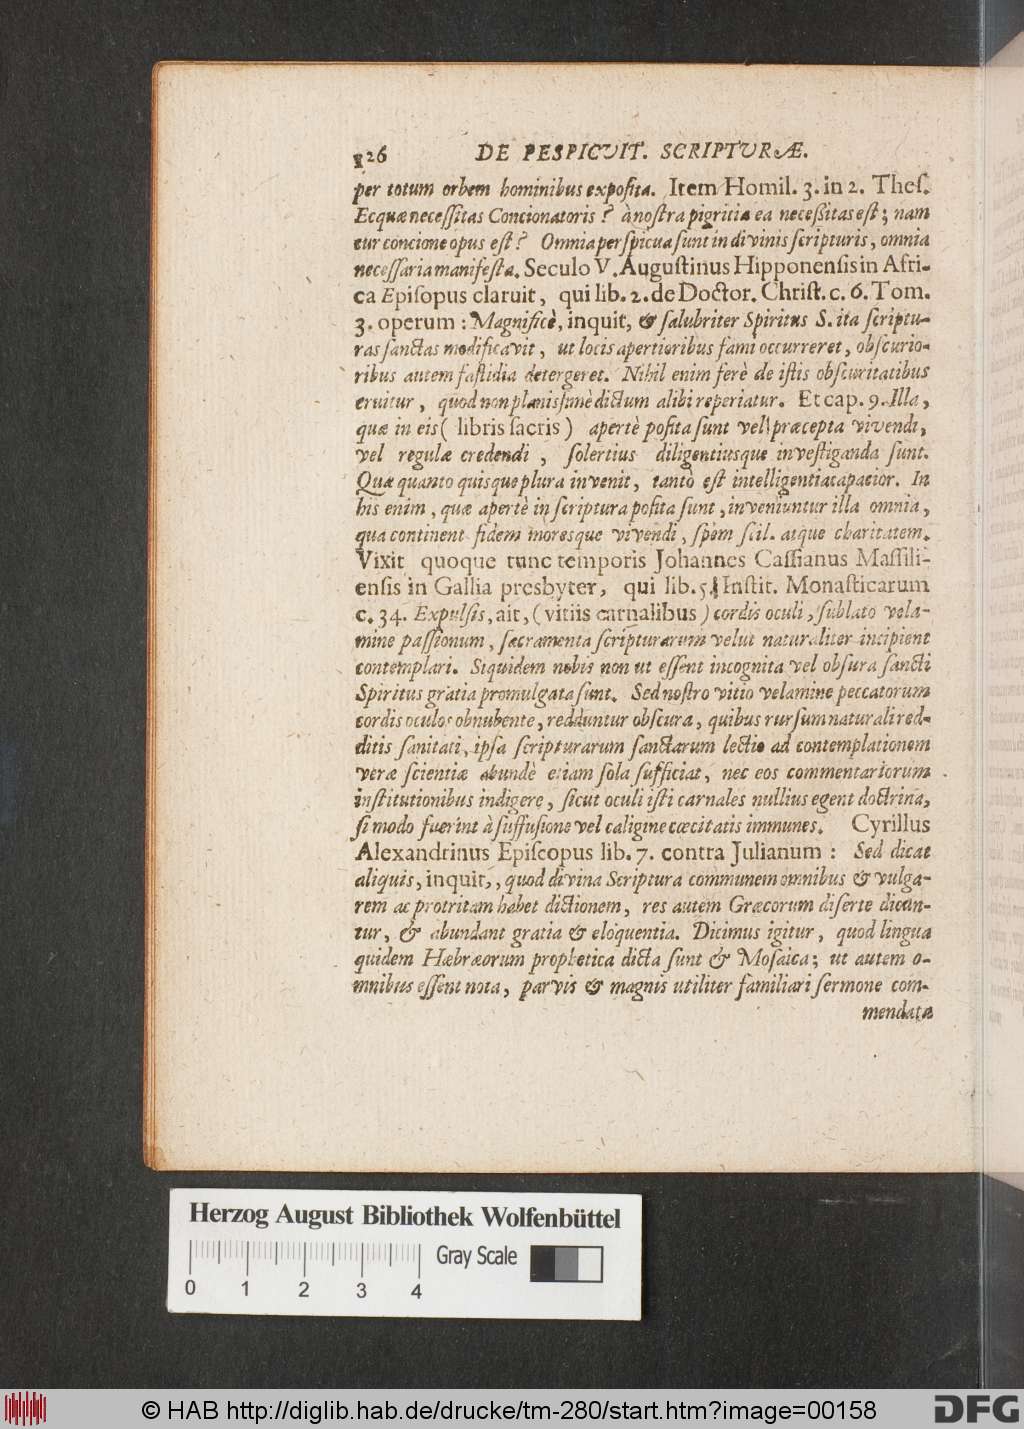 126 DE PESPICVIT. SCRIPTURÆ.
per totum orbem hominibus exposita. Item Homil. 3. in 2. Thes.
Ecquæ necessitas Concionatoris? à nostra pigritia ea necessitas est; nam
cur concione opus est? Omnia perspicua sunt in divinis scripturis, omnia
necessaria manifesta. Seculo V. Augustinus Hipponensis in Afri-
ca Episopus claruit, qui lib. 2. de Doctor. Christ. c. 6. Tom.
3. operum: Magnificè, inquit, & salubriter Spiritus S. ita scriptu-
ras sanctas modificavit, ut locis apertioribus fami occurreret, obscurio-
ribus autem fastidia detergeret. Nihil enim ferè de istis obscuritatibus
eruitur, quod non planissimè dictum alibi reperiatur. Et cap. 9. Illa,
quæ in eis (libris sacris) apertè posita sunt vel præcepta vivendi,
vel regulæ credendi, solertius diligentiusque investiganda sunt.
Quæ quanto quisque plura invenit, tantò est intelligentia capacior. In
his enim, quæ apertè in scriptura posita sunt, inveniuntur illa omnia,
qua continent fidem moresque vivendi, spem scil. atque charitatem.
Vixit quoque tunc temporis Johannes Cassianus Massili-
ensis in Gallia presbyter, qui lib. 5. Instit. Monasticarum
c. 34. Expulsis, ait, (vitiis carnalibus) cordis oculi, sublato vela-
mine passionum, sacramenta scripturarum velut naturaliter incipient
contemplari. Siquidem nobis non ut essent incognita vel obsura sancti
Spiritus gratia promulgata sunt. Sed nostro vitio velamine peccatorum
cordis oculos obnubente, redduntur obscura, quibus rursum naturali red-
ditis sanitati, ipsa scripturarum sanctarum lectio ad contemplationem
veræ scientiæ abundè etiam sola sufficiat, nec eos commentariorum
institutionibus indigere, sicut oculi isti carnales nullius egent doctrina,
si modo fuerint à suffusione vel caligine cœcitatis immunes. Cyrillus
Alexandrinus Episcopus lib. 7. contra Julianum: Sed dicat
aliquis, inquit, quod divina Scriptura communem omnibus & vulga-
rem ac protritam habet dictionem, res autem Græcorum diserte dicun-
tur, & abundant gratia & eloquentia. Dicimus igitur, quod lingua
quidem Hæbræorum prophetica dicta sunt & Mosaica; ut autem o-
mnibus essent nota, parvis & magnis utiliter familiari sermone com-
mendata
Herzog August Bibliothek Wolfenbüttel
Gray Scale
0 1 2 3 4
© HAB http://diglib.hab.de/drucke/tm-280/start.htm?image=00158
DFG